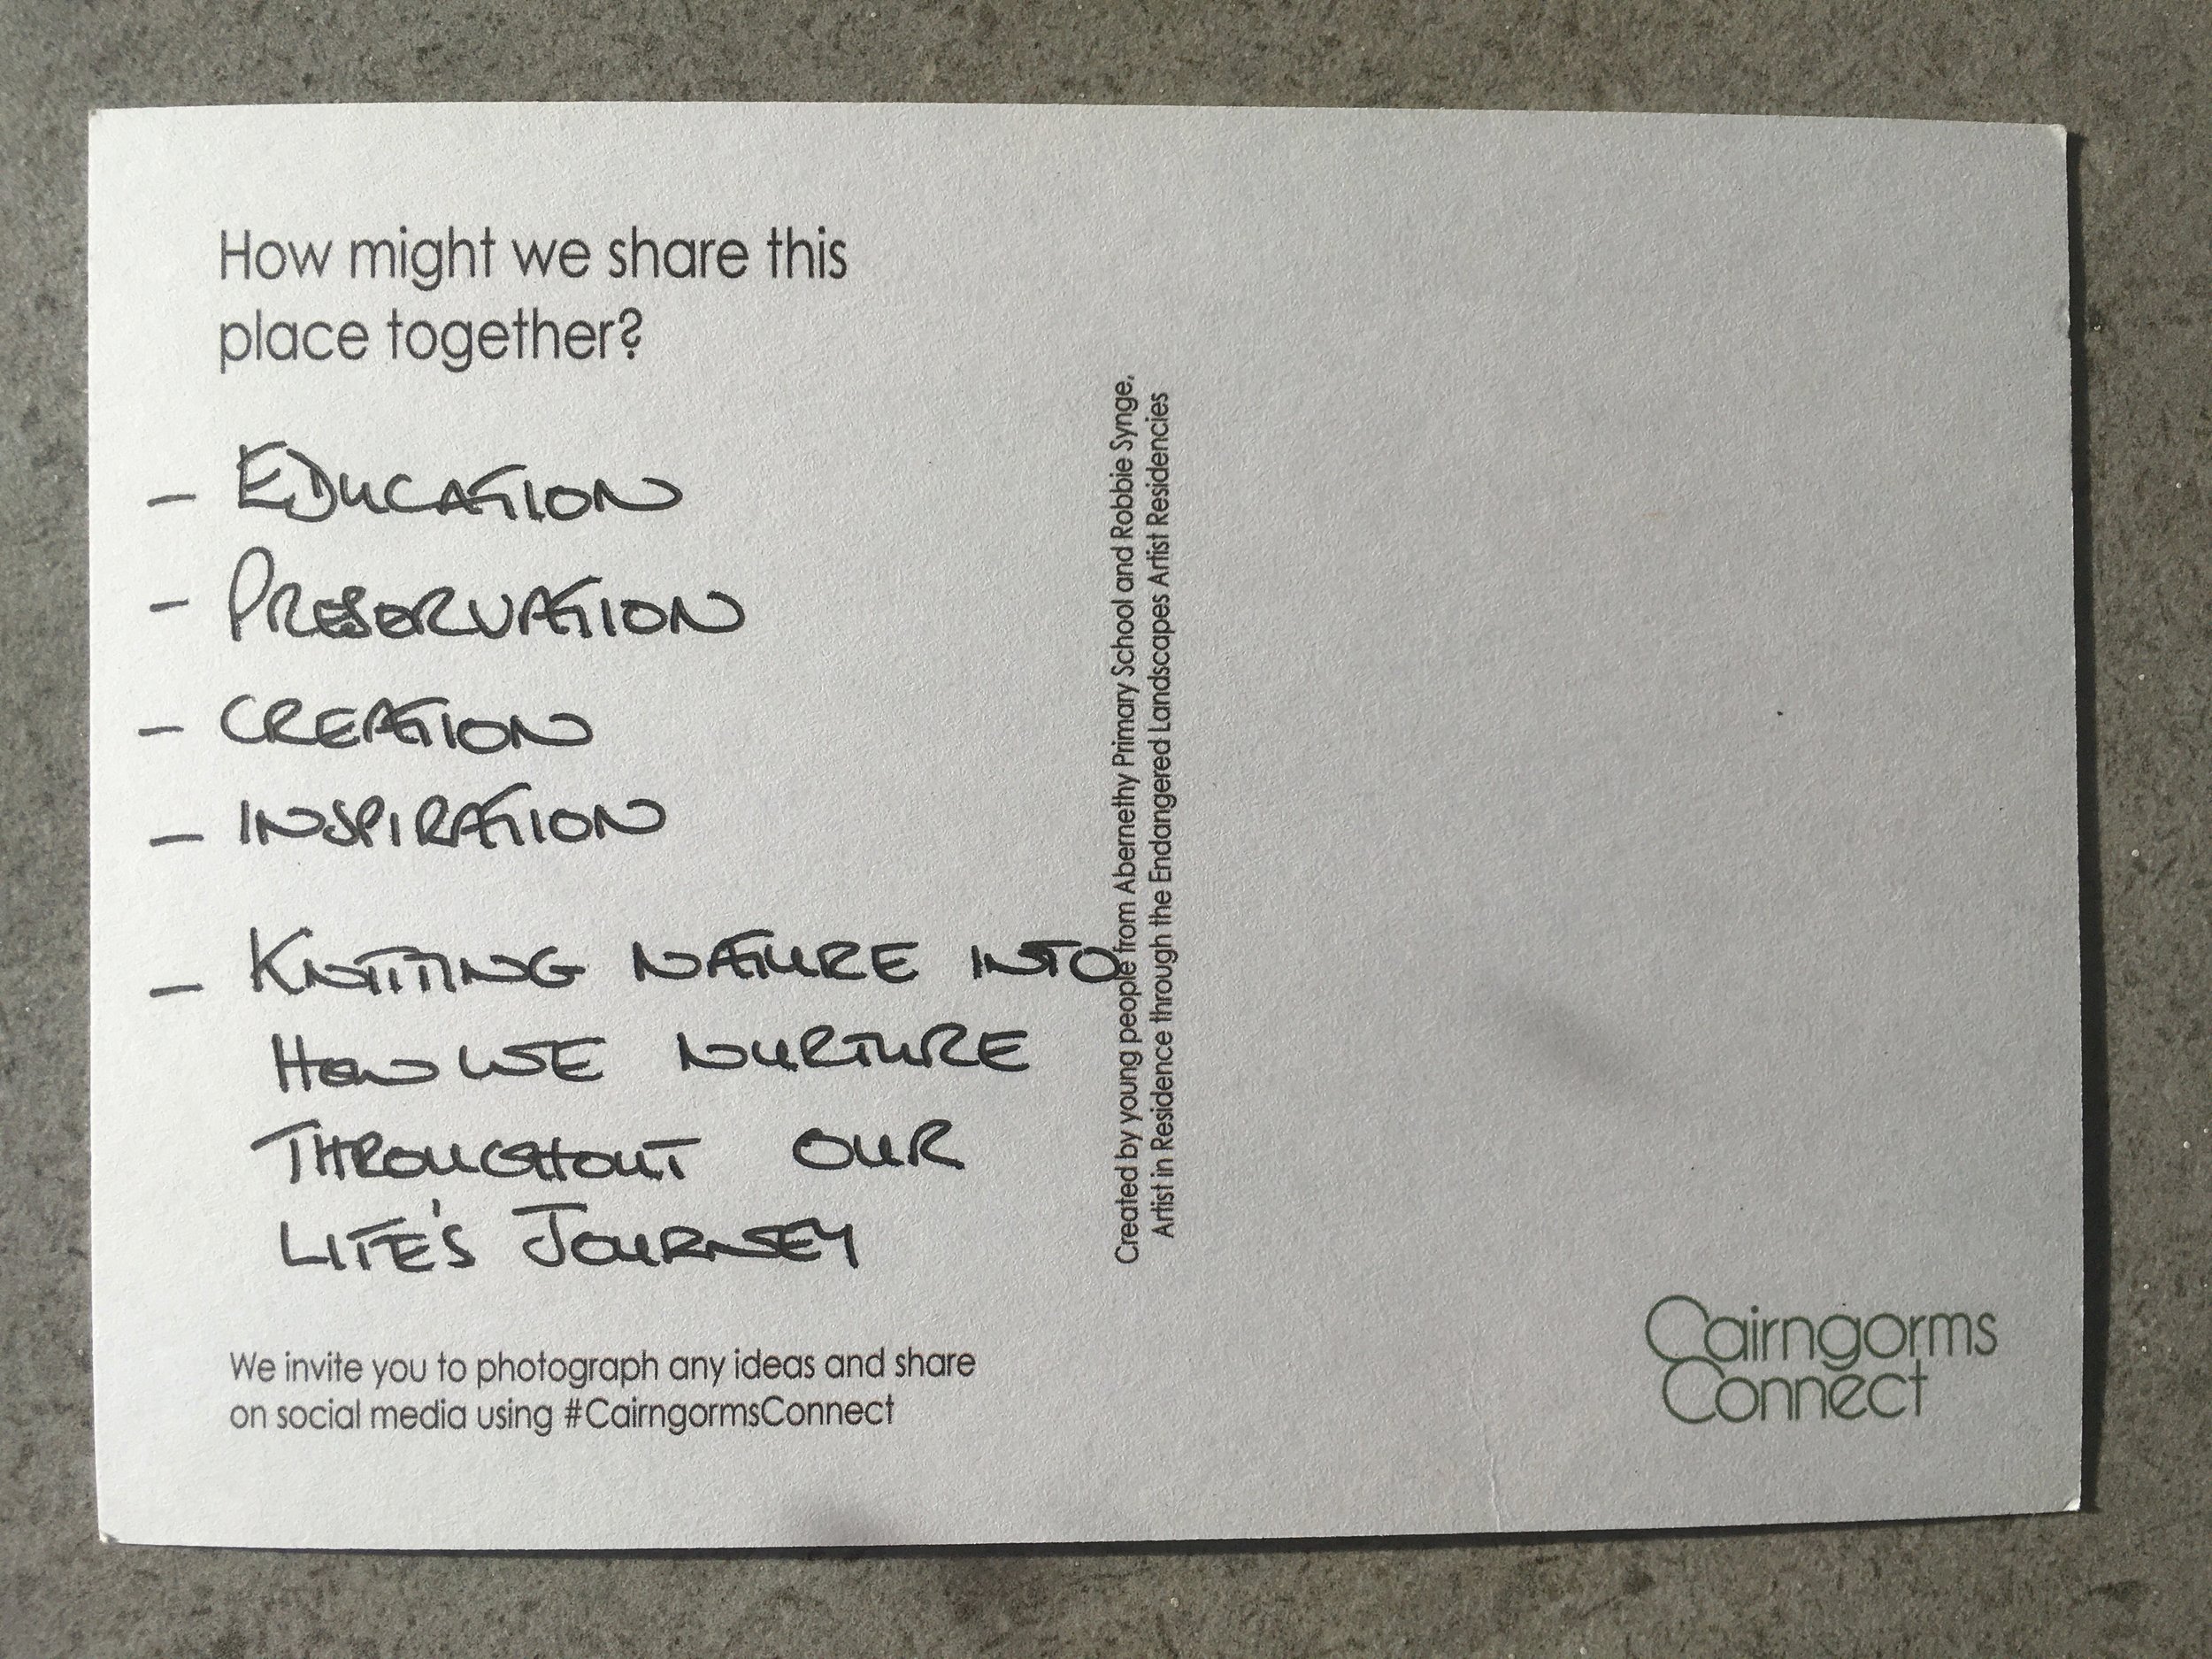 How might we share this
place together?
- EDUCATION
- PRESERVATION
- CREATION
- INSPIRATION
- KNITTING NATURE INTO
HOW WE NURTURE
THROUGHOUT OUR
LIFE'S JOURNEY
We invite you to photograph any ideas and share
on social media using #CairngormsConnect
Created by young people from Abernethy Primary School and Robbie Synge,
Artist in Residence through the Endangered Landscapes Artist Residencies
Cairngorms
Connect